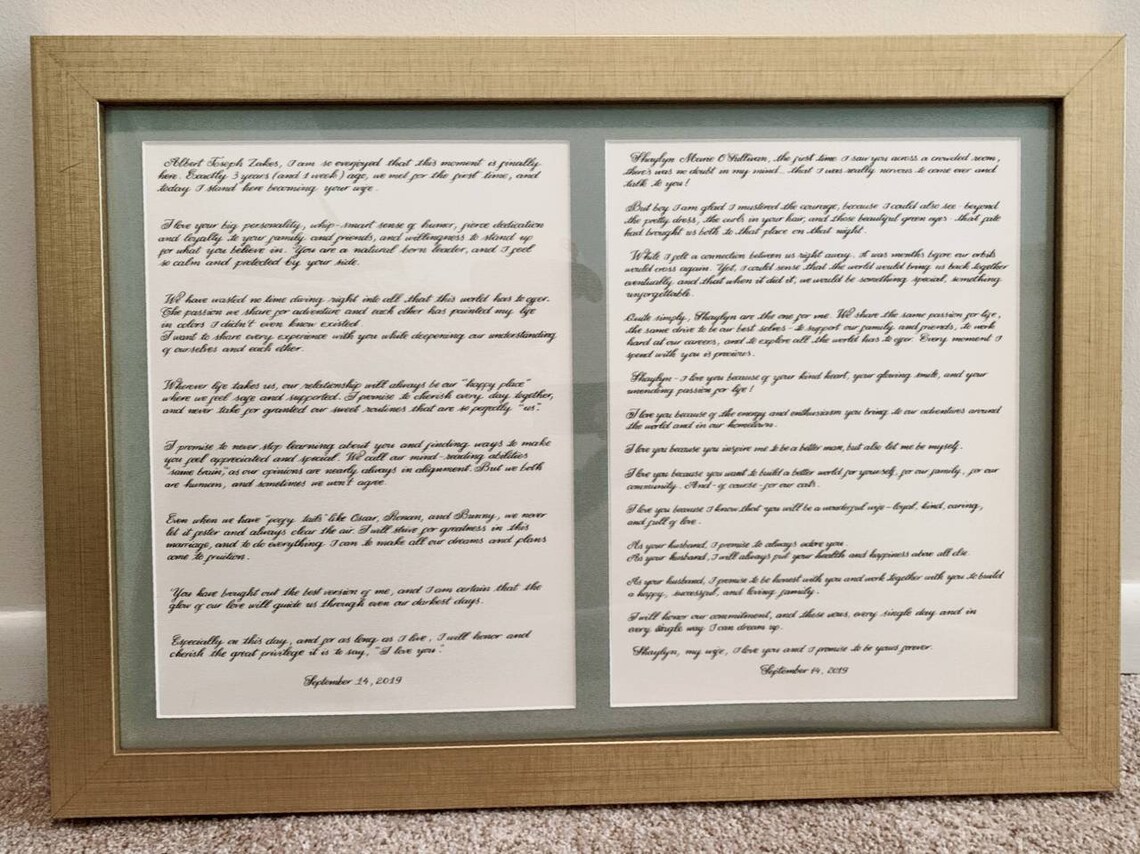 Albert Joseph Zakes, I am so overjoyed that this moment is finally
here. Exactly 3 years (and 1 week) ago, we met for the first time, and
today I stand here becoming your wife.
I love your big personality, whip-smart sense of humor, fierce dedication
and loyalty to your family and friends, and willingness to stand up
for what you believe in. You are a natural born leader, and I feel
so calm and protected by your side.
We have wasted no time diving right into all that this world has to offer.
The passion we share for adventure and each other has painted my life
in colors I didn't even know existed.
I want to share every experience with you while deepening our understanding
of ourselves and each other.
Wherever life takes us, our relationship will always be our "happy place"
where we feel safe and supported. I promise to cherish every day together,
and never take for granted our sweet routines that are so perfectly "us".
I promise to never stop learning about you and finding ways to make
you feel appreciated and special. We call our mind-reading abilities
"same brain," as our opinions are nearly always in alignment. But we both
are human, and sometimes we won't agree.
Even when we have "poofy tails" like Oscar, Ronan, and Bunny, we never
let it fester and always clear the air. I will strive for greatness in this
marriage, and to do everything I can to make all our dreams and plans
come to fruition.
You have brought out the best version of me, and I am certain that the
glow of our love will guide us through even our darkest days.
Especially on this day, and for as long as I live, I will honor and
cherish the great privilege it is to say, "I love you".
September 14, 2019
Shaylyn Marie O'Sullivan, the first time I saw you across a crowded room,
there's was no doubt in my mind... that I was really nervous to come over and
talk to you!
But boy I am glad I mustered the courage, because I could also see - beyond
the pretty dress, the curls in your hair, and those beautiful green eyes - that fate
had brought us both to that place on that night.
While I felt a connection between us right away. it was months before our orbits
would cross again. Yet, I could sense that the world would bring us back together
eventually and that when it did it, we would be something special, something
unforgettable.
Quite simply, Shaylyn are the one for me. We share the same passion for life,
the same drive to be our best selves - to support our family and friends, to work
hard at our careers, and to explore all the world has to offer. Every moment I
spend with you is precious.
Shaylyn - I love you because of your kind heart, your glowing smile, and your
unending passion for life!
I love you because of the energy and enthusiasm you bring to our adventures around
the world and in our hometown.
I love you because you inspire me to be a better man, but also let me be myself.
I love you because you want to build a better world for yourself, for our family, for our
community. And - of course - for our cats.
I love you because I know that you will be a wonderful wife - loyal, kind, caring,
and full of love.
As your husband, I promise to always adore you.
As your husband, I will always put your health and happiness above all else.
As your husband, I promise to be honest with you and work together with you to build
a happy, successful, and loving family.
I will honor our commitment, and these vows, every single day and in
every single way I can dream up.
Shaylyn, my wife, I love you and I promise to be yours forever.
September 14, 2019